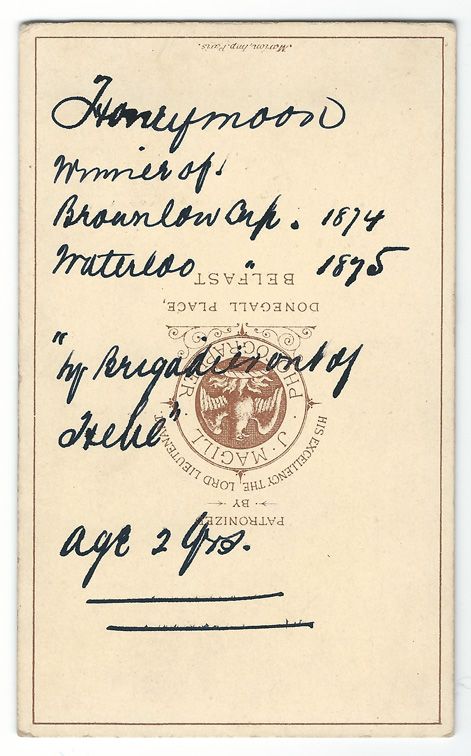 Marion, Imp. Paris.
Honeymoon
Winner of
Brownlow Cup. 1874
Waterloo " 1875
"by Brigadier out of
Hebe"
age 2 yrs.
PATRONIZED
BY
HIS EXCELLENCY THE LORD LIEUTENANT
J. MAGILL PHOTOGRAPHER
DONEGALL PLACE,
BELFAST